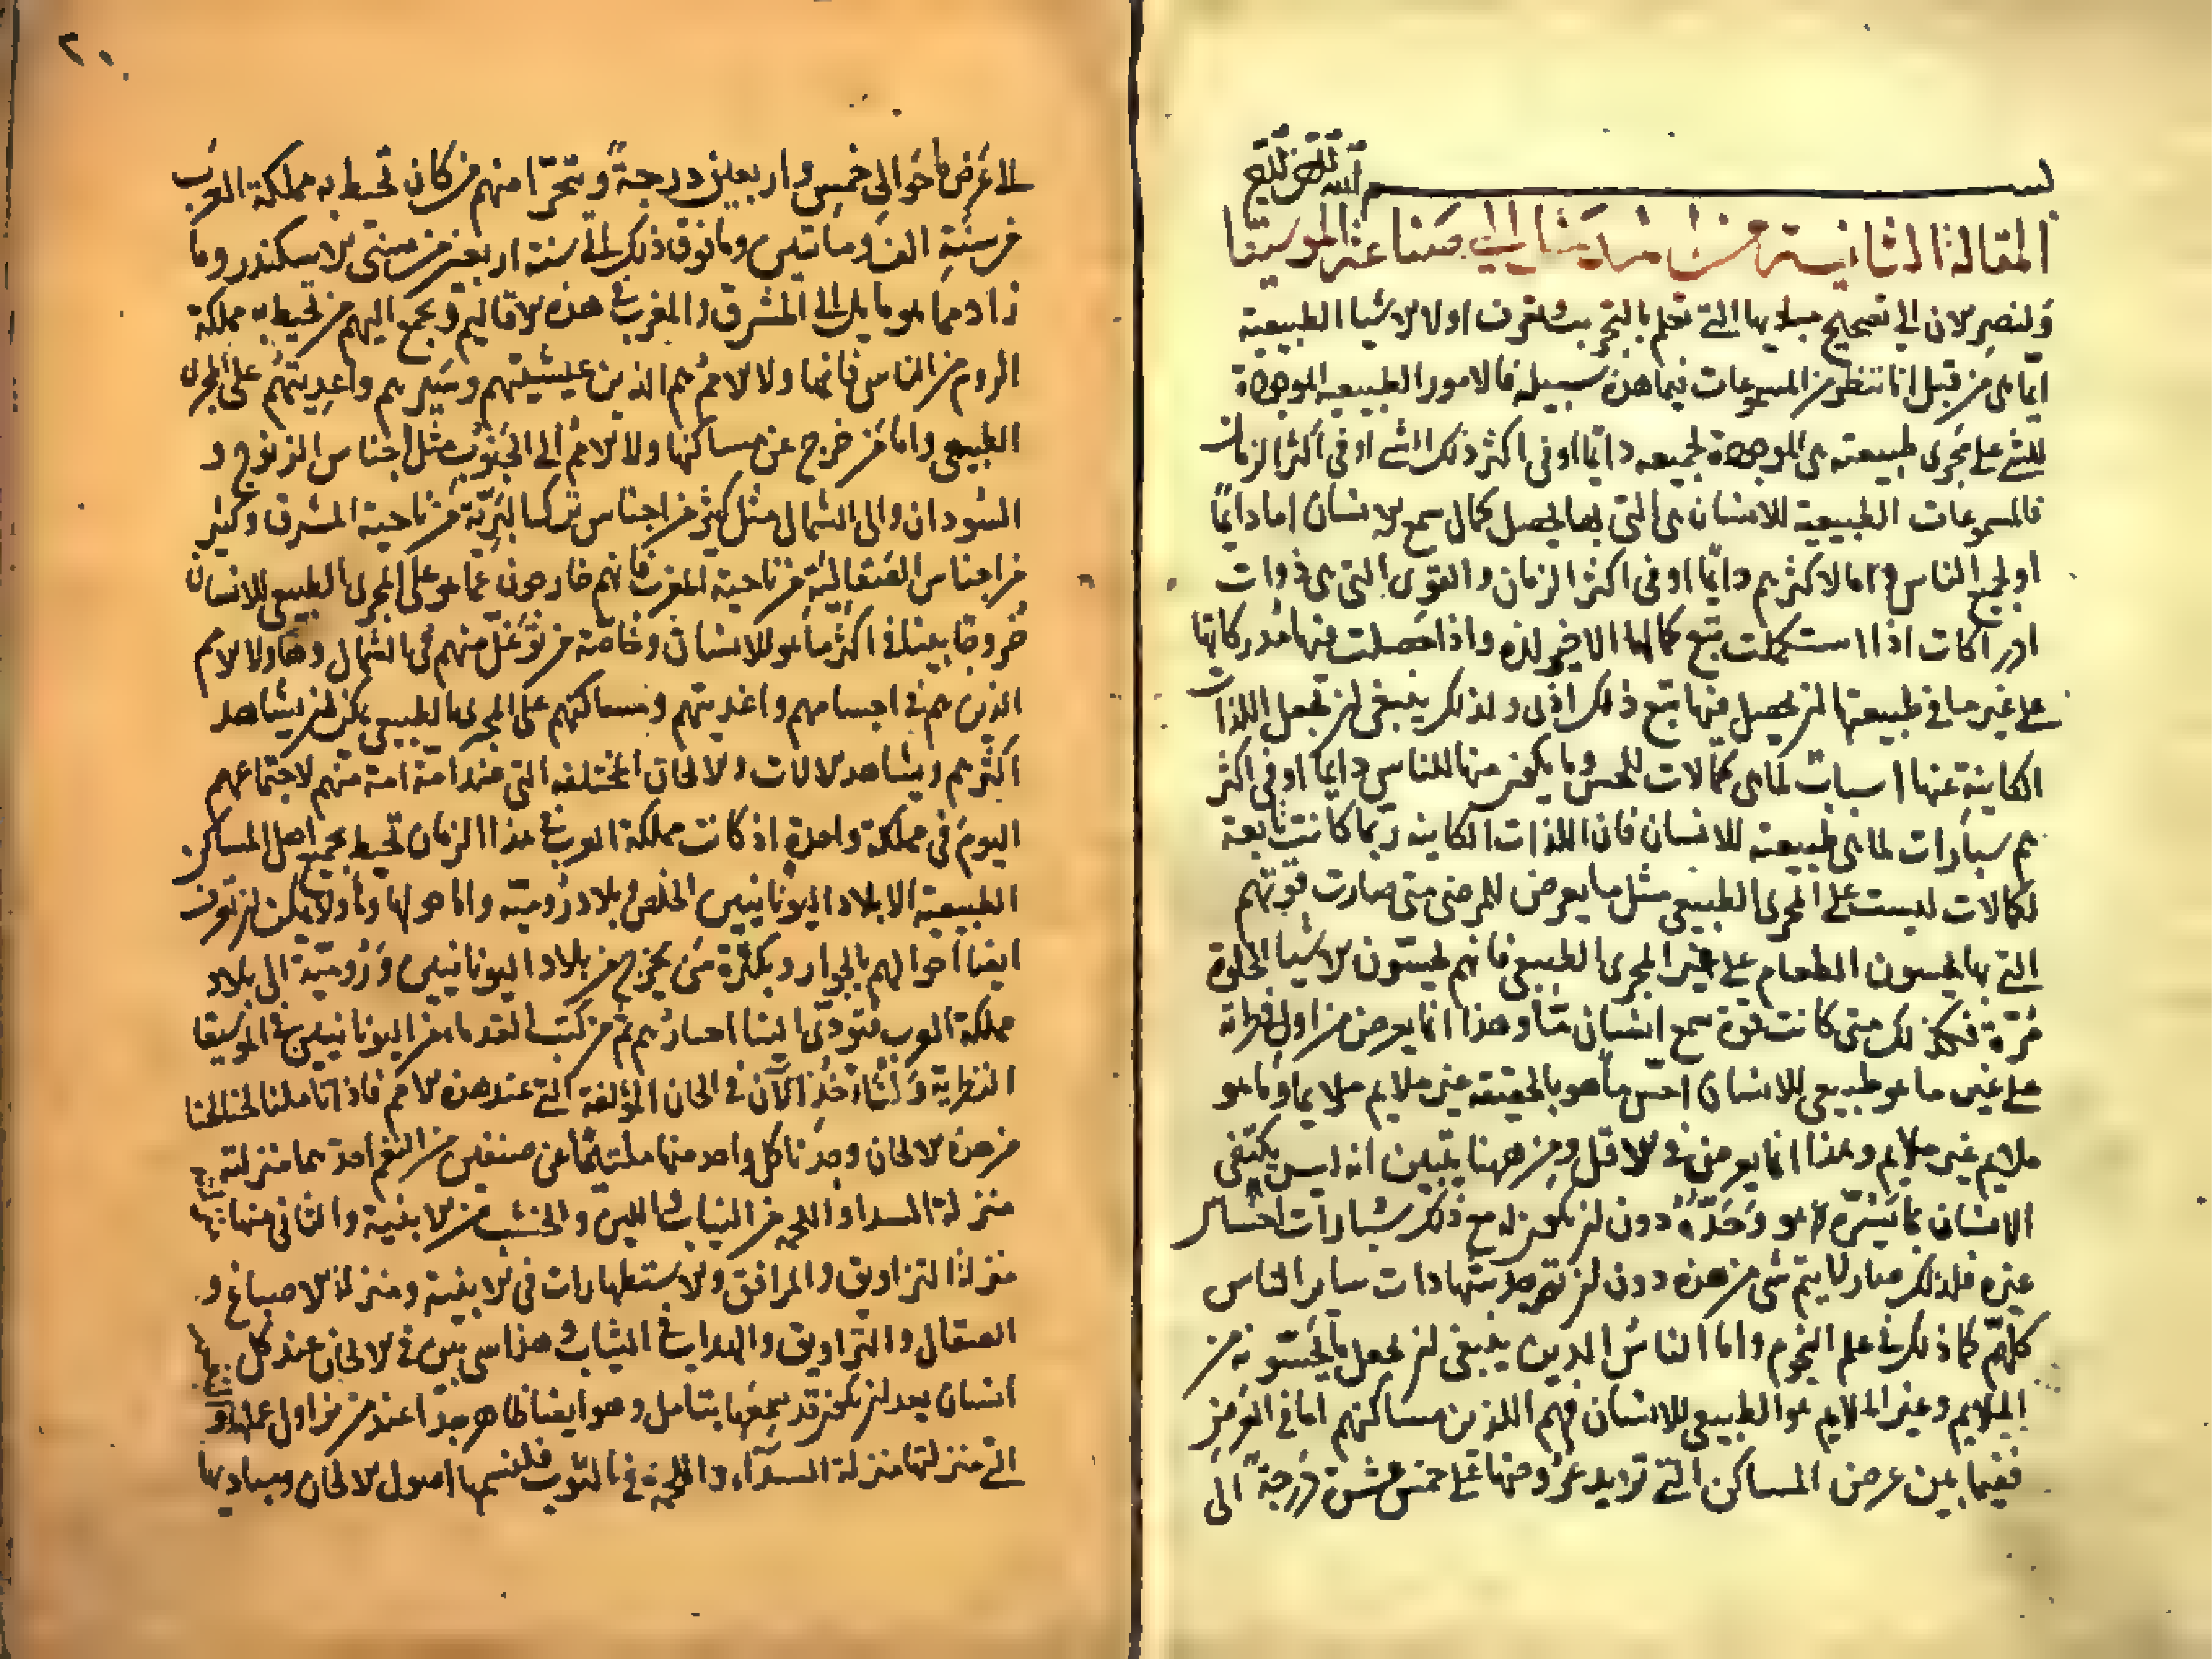 بسم الله الرحمن الرحيم
المقالة الثانية من المدخل الى صناعة الموسيقا
ولنصر الان الى تصحيح مباديها التى تعلم بالتجربة ولنعرف اولا الاشيا الطبيعية
ايما هى من قبل انا ننظر من المسموعات فيما هذه سبيله فالامور الطبيعيه الموجودة
للشى على مجرى طبيعته هى الموجودة لجميعه دائما او فى اكثر ذلك الشى او فى اكثر الزمان
فالمسموعات الطبيعية للانسان هى التى بها يحصل كمال سمع الانسان اما دايما
او لجميع الناس واما لاكثرهم دايما او فى اكثر الزمان والقوى التى هى ذوات
ادراكات اذا استكملت تبع كمالها الاخير لذه واذا حصلت منها مدركاتها
على غير ما فى طبيعتها ان يحصل منها تبع ذلك اذى ولذلك ينبغى ان تجعل اللذات
الكاينة عنها اسبابا لما هى كمالات للحس وما يكون منها للناس دايما او فى اكثر
هم سبارات لما هى طبيعية للانسان فان اللذات الكاينه ربما كانت تابعة
لكمالات ليست على المجرى الطبيعى مثل ما يعرض للمرضى متى صارت قوتهم
التى بها يحسون الطعام على غير المجرى الطبيعى فانهم يحسون الاشيا الحلوة
مرة فكذلك متى كانت قوة سمع انسان ما وهذا انما يعرض من اول فطرته
على غير ما هو طبيعى للانسان احس ما هو بالحقيقه غير ملايم ملايما وما هو
ملايم غير ملايم وهذا انما يعرض فى الاقل ومن ههنا يتبين انه ليس يكتفى
الانسان بما يسره هو وحده دون ان يكون له مع ذلك سبارات احساس
غيره فلذلك صار لا يتم شى من هذه دون ان توجد شهادات ساير الناس
كلهم كما ذلك فى علم النجوم واما الناس الذين ينبغى ان يجعل ما يحسونه من
الملايم وغير الملايم هو الطبيعى للانسان فهم اللذين مساكنهم اما فى العرض
ففيما بين عرض المساكن التى تزيد عروضها على خمس عشرة درجة الى
٢٠
لا عرضها حوالى خمس واربعين درجة ويتحرا منهم من كان تحيط به مملكة العرب
من سنة الف ومائتين وما فوق ذلك الى سنة اربعين من سنى الاسكندر وما
زاد مما هو مايل الى المشرق والمغرب فى هذه الاقاليم ويجمع اليهم من تحيط به مملكة
الروم من الناس فانما ولا الامم هم الذين عيشتهم وسيرهم واغديتهم على المجرى
الطبيعى واما من خرج عن مساكنها ولا الامم الى الجنوب مثل اجناس الزنوج و
السودان والى الشمال مثل كثير من اجناس ترك البرية من ناحية المشرق وكثير
من اجناس الصقالبة من ناحية المغرب فانهم خارجون عما هو على المجرى الطبيعى للانسان
خروجا بينا فى اكثر ما هو للانسان وخاصة من توغل منهم فى الشمال وهاولا الامم
الذين هم فى اجسامهم واغديتهم ومساكنهم على المجرى الطبيعى يمكن ان يشاهد
اكثرهم ويشاهد الالات والالحان المختلفه التى عند امة امة منهم لاجتماعهم
اليوم فى مملكة واحدة اذ كانت مملكة العرب فى هذا الزمان تحيط بجميع اهل المساكن
الطبيعية الا بلاد اليونانيين الخلص وبلاد رومية وما هو لها وما ولا يمكن ان تعرف
ايضا احوالهم بالجوار وبكثرة من يخرج من بلاد اليونانيين ورومية الى بلاد
مملكة العرب فتودى الينا اخبارهم ثم من كتب القدما من اليونانيين فى الموسيقا
النظرية ولناخذ الان فى الحان المؤلفة التى عند هذه الامم فاذا تاملنا لحنا لحنا
من هذه الالحان وجدنا كل واحد منها ملتيما عن صنفين من النغم احدهما منزلته
منزلة السدا واللحمة من الثياب واللبن والخشب من الابنية والثانى منهما
منزلة التزاويق والمرافق والاستظهارات فى الابنية ومنزلة الاصباغ و
الصقال والتزاويق والهداب فى الثياب هذا سى بين فى الالحان عند كل
انسان بعد ان يكون قد سمعها بتامل وهو ايضا ظاهر جدا عند من زاول عملها و
التى منزلتها منزلة السداء واللحمة فى الثوب فلنسمها اصول الالحان ومباديها